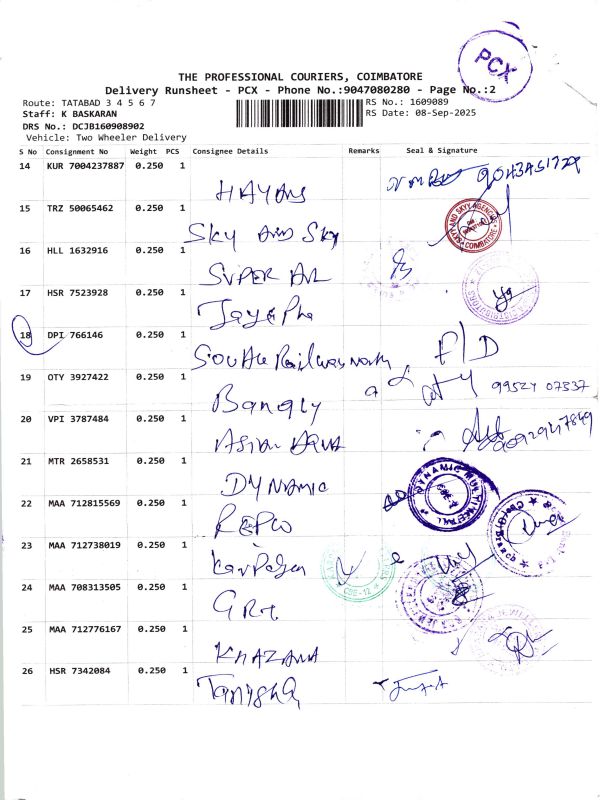 PCX
THE PROFESSIONAL COURIERS, COIMBATORE
Delivery Runsheet - PCX - Phone No.:9047080280 - Page No.:2
Route: TATABAD 3 4 5 6 7
RS No.: 1609089
Staff: K BASKARAN
RS Date: 08-Sep-2025
DRS No.: DCJB160908902
Vehicle: Two Wheeler Delivery
S No Consignment No Weight PCS Consignee Details Remarks Seal & Signature
14 KUR 7004237887 0.250 1
HAYANS
15 TRZ 50065462 0.250 1
SKY AND SKY
SKY AND SKYY AGENCIES COIMBATORE
16 HLL 1632916 0.250 1
SUPER AVL
17 HSR 7523928 0.250 1
18 DPI 766146 0.250 1
F/D
19 OTY 3927422 0.250 1
99524 07337
20 VPI 3787484 0.250 1
ASIAN AQUA
21 MTR 2658531 0.250 1
DYNAMIC
DYNAMIC
22 MAA 712815569 0.250 1
REPCO
23 MAA 712738019 0.250 1
CBE-12
24 MAA 708313505 0.250 1
GRT
25 MAA 712776167 0.250 1
KHAZANA
26 HSR 7342084 0.250 1
TANISHQ